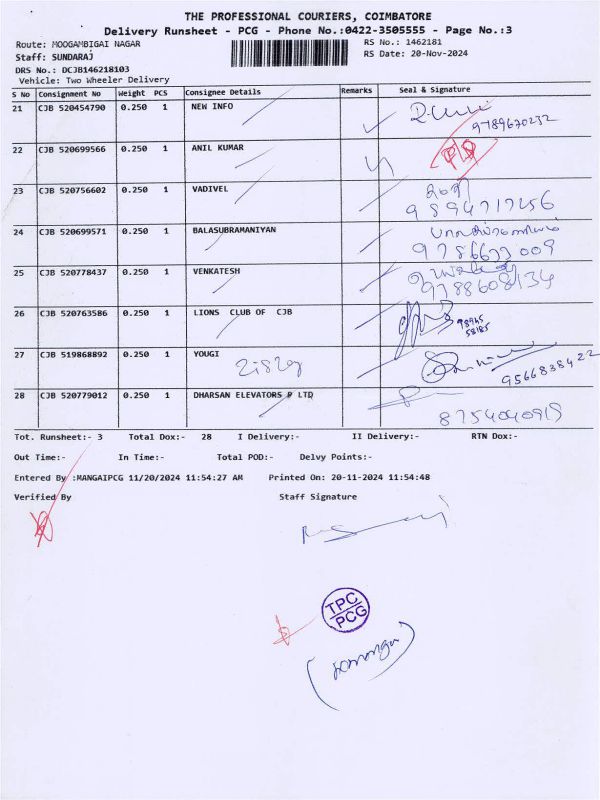 THE PROFESSIONAL COURIERS, COIMBATORE
Delivery Runsheet - PCG - Phone No.:0422-3505555 - Page No.:3
Route: MOOGAMBIGAI NAGAR
RS No.: 1462181
Staff: SUNDARAJ
RS Date: 20-Nov-2024
DRS No.: DCJB146218103
Vehicle: Two Wheeler Delivery
S No Consignment No Weight PCS Consignee Details Remarks Seal & Signature
21 CJB 520454790 0.250 1 NEW INFO
9789670232
22 CJB 520699566 0.250 1 ANIL KUMAR
23 CJB 520756602 0.250 1 VADIVEL
9894717256
24 CJB 520699571 0.250 1 BALASUBRAMANIYAN
9786673009
25 CJB 520778437 0.250 1 VENKATESH
9788608134
26 CJB 520763586 0.250 1 LIONS CLUB OF CJB
98945
58185
27 CJB 519868892 0.250 1 YOUGI
9566838422
28 CJB 520779012 0.250 1 DHARSAN ELEVATORS P LTD
8754040919
Tot. Runsheet:- 3 Total Dox:- 28 I Delivery:- II Delivery:- RTN Dox:-
Out Time:- In Time:- Total POD:- Delvy Points:-
Entered By :MANGAIPCG 11/20/2024 11:54:27 AM Printed On: 20-11-2024 11:54:48
Verified By Staff Signature
TPC
PCG